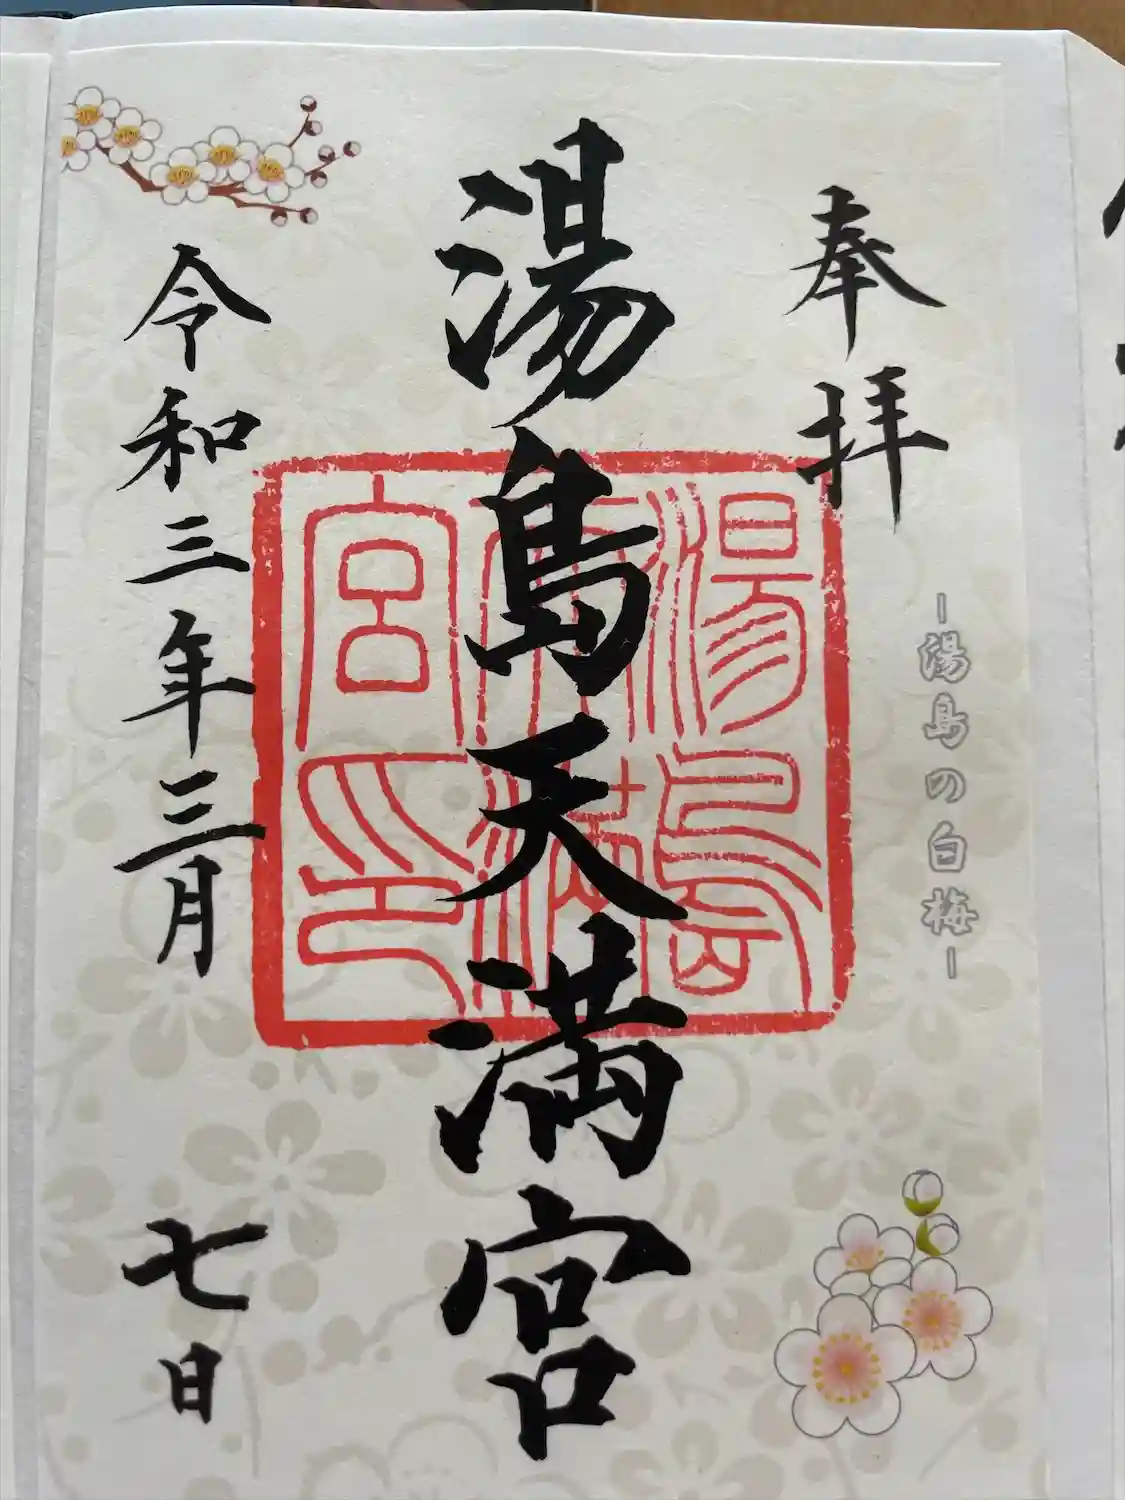 奉拝
-湯島の白梅-
湯島天満宮
湯島
天満
宮印
令和三年三月七日